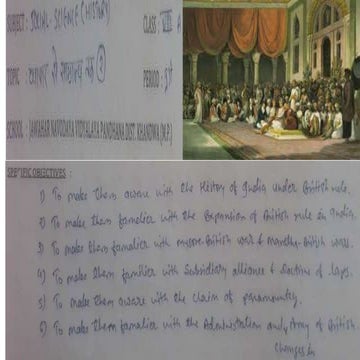 SUBJECT : SOCIAL - SCIENCE (HISTORY)
CLASS : VIII A
TOPIC व्यापार से साम्राज्य तक ②
PERIOD : 3rd
SCHOOL : JAWAHAR NAVODAYA VIDYALAYA PANDHANA DIST. KHANDWA (M.P.)
SPECIFIC OBJECTIVES :
1) To make them aware with the History of India under British rule.
2) To make them familier with the expansion of British rule in India.
3) To make them familier with mysore-British war & maratha-British wars.
4) To make them familier with Subsidiary alliance & doctrine of laps.
5) To make them aware with the claim of paramountcy.
6) To make them familier with the Administration and Army of British.
Changes in